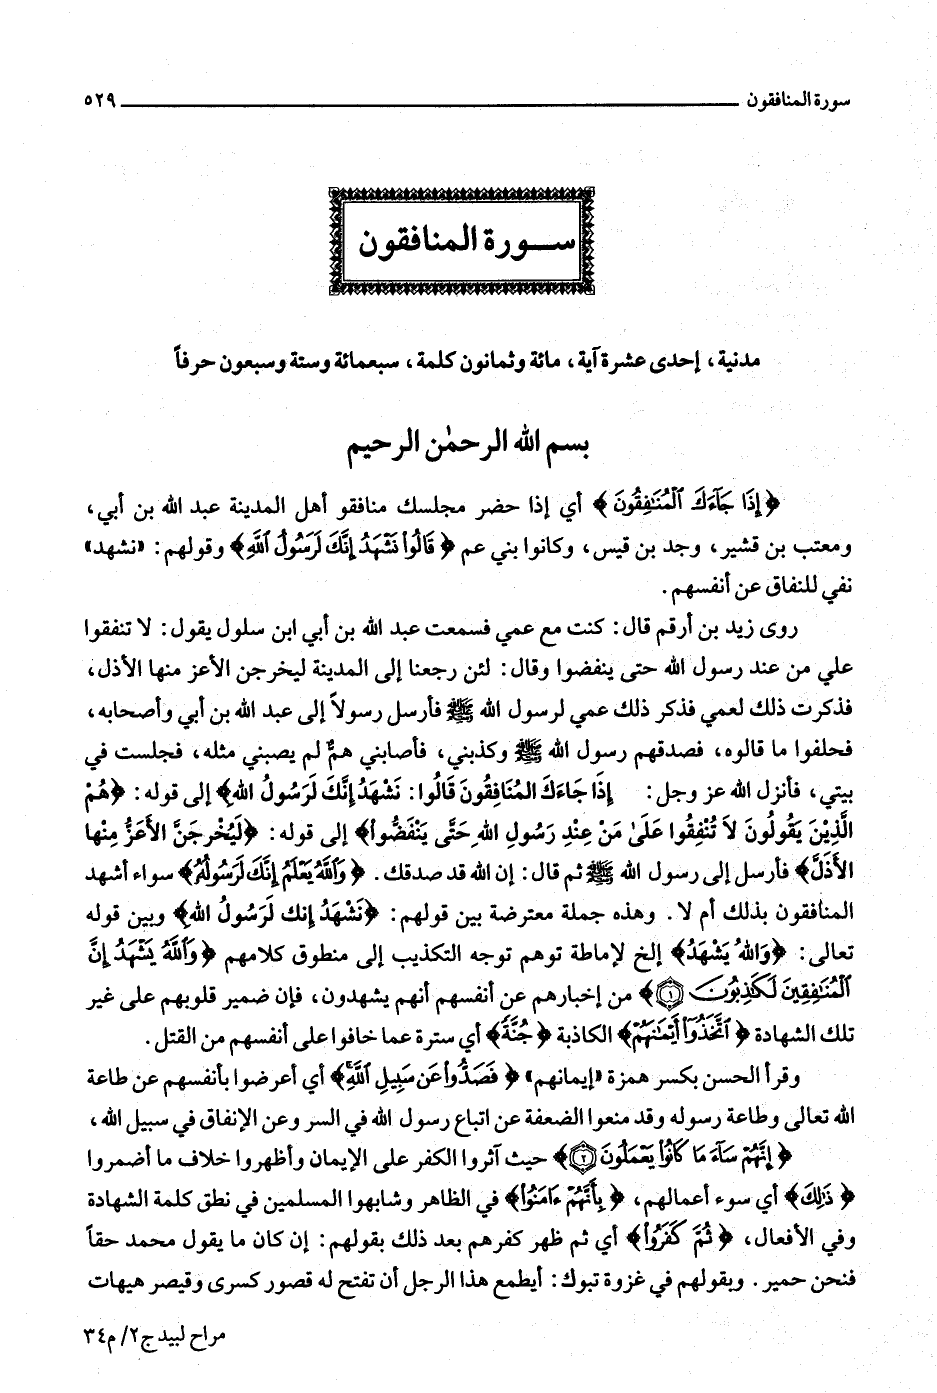 سورة المنافقون ٥٢٩
ســورة المنافقون
مدنية، إحدى عشرة آية، مائة وثمانون كلمة، سبعمائة وستة وسبعون حرفاً
بسم الله الرحمٰن الرحيم
﴿ إِذَا جَآءَكَ ٱلْمُنَٰفِقُونَ ﴾ أي إذا حضر مجلسك منافقو أهل المدينة عبد الله بن أبي،
ومعتب بن قشير، وجد بن قيس، وكانوا بني عم ﴿ قَالُوا۟ نَشْهَدُ إِنَّكَ لَرَسُولُ ٱللَّهِ ﴾ وقولهم: «نشهد»
نفي للنفاق عن أنفسهم.
روى زيد بن أرقم قال: كنت مع عمي فسمعت عبد الله بن أبي ابن سلول يقول: لا تنفقوا
علي من عند رسول الله حتى ينفضوا وقال: لئن رجعنا إلى المدينة ليخرجن الأعز منها الأذل،
فذكرت ذلك لعمي فذكر ذلك عمي لرسول الله ﷺ فأرسل رسولاً إلى عبد الله بن أبي وأصحابه،
فحلفوا ما قالوه، فصدقهم رسول الله ﷺ وكذبني، فأصابني همٌّ لم يصبني مثله، فجلست في
بيتي، فأنزل الله عز وجل: إِذَا جَاءَكَ المُنَافِقُونَ قَالُوا: نَشْهَدُ إِنَّكَ لَرَسُولُ اللهِ﴾ إلى قوله: ﴿هُمْ
الَّذِيْنَ يَقُولُونَ لاَ تُنْفِقُوا عَلَىٰ مَنْ عِنْدِ رَسُولِ اللهِ حَتَّى يَنْفَضُّوا﴾ إلى قوله: ﴿لَيُخْرِجَنَّ الأَعَزُّ مِنْها
الأَذَلَّ﴾ فأرسل إلى رسول الله ﷺ ثم قال: إن الله قد صدقك. ﴿ وَٱللَّهُ يَعْلَمُ إِنَّكَ لَرَسُولُهُۥ ﴾ سواء أشهد
المنافقون بذلك أم لا. وهذه جملة معترضة بين قولهم: ﴿نَشْهَدُ إِنك لَرَسُولُ اللهِ﴾ وبين قوله
تعالى: ﴿وَاللهُ يَشْهَدُ﴾ إلخ لإماطة توهم توجه التكذيب إلى منطوق كلامهم ﴿ وَٱللَّهُ يَشْهَدُ إِنَّ
ٱلْمُنَٰفِقِينَ لَكَٰذِبُونَ ۝١ ﴾ من إخبارهم عن أنفسهم أنهم يشهدون، فإن ضمير قلوبهم على غير
تلك الشهادة ﴿ ٱتَّخَذُوٓا۟ أَيْمَٰنَهُمْ ﴾ الكاذبة ﴿ جُنَّةً ﴾ أي سترة عما خافوا على أنفسهم من القتل.
وقرأ الحسن بكسر همزة «إيمانهم» ﴿ فَصَدُّوا۟ عَن سَبِيلِ ٱللَّهِ ﴾ أي أعرضوا بأنفسهم عن طاعة
الله تعالى وطاعة رسوله وقد منعوا الضعفة عن اتباع رسول الله في السر وعن الإنفاق في سبيل الله،
﴿ إِنَّهُمْ سَآءَ مَا كَانُوا۟ يَعْمَلُونَ ۝٢ ﴾ حيث آثروا الكفر على الإيمان وأظهروا خلاف ما أضمروا
﴿ ذَٰلِكَ ﴾ أي سوء أعمالهم، ﴿ بِأَنَّهُمْ ءَامَنُوا۟ ﴾ في الظاهر وشابهوا المسلمين في نطق كلمة الشهادة
وفي الأفعال، ﴿ ثُمَّ كَفَرُوا۟ ﴾ أي ثم ظهر كفرهم بعد ذلك بقولهم: إن كان ما يقول محمد حقاً
فنحن حمير. وبقولهم في غزوة تبوك: أيطمع هذا الرجل أن تفتح له قصور كسرى وقيصر هيهات
مراح لبيد ج٢/ م٣٤